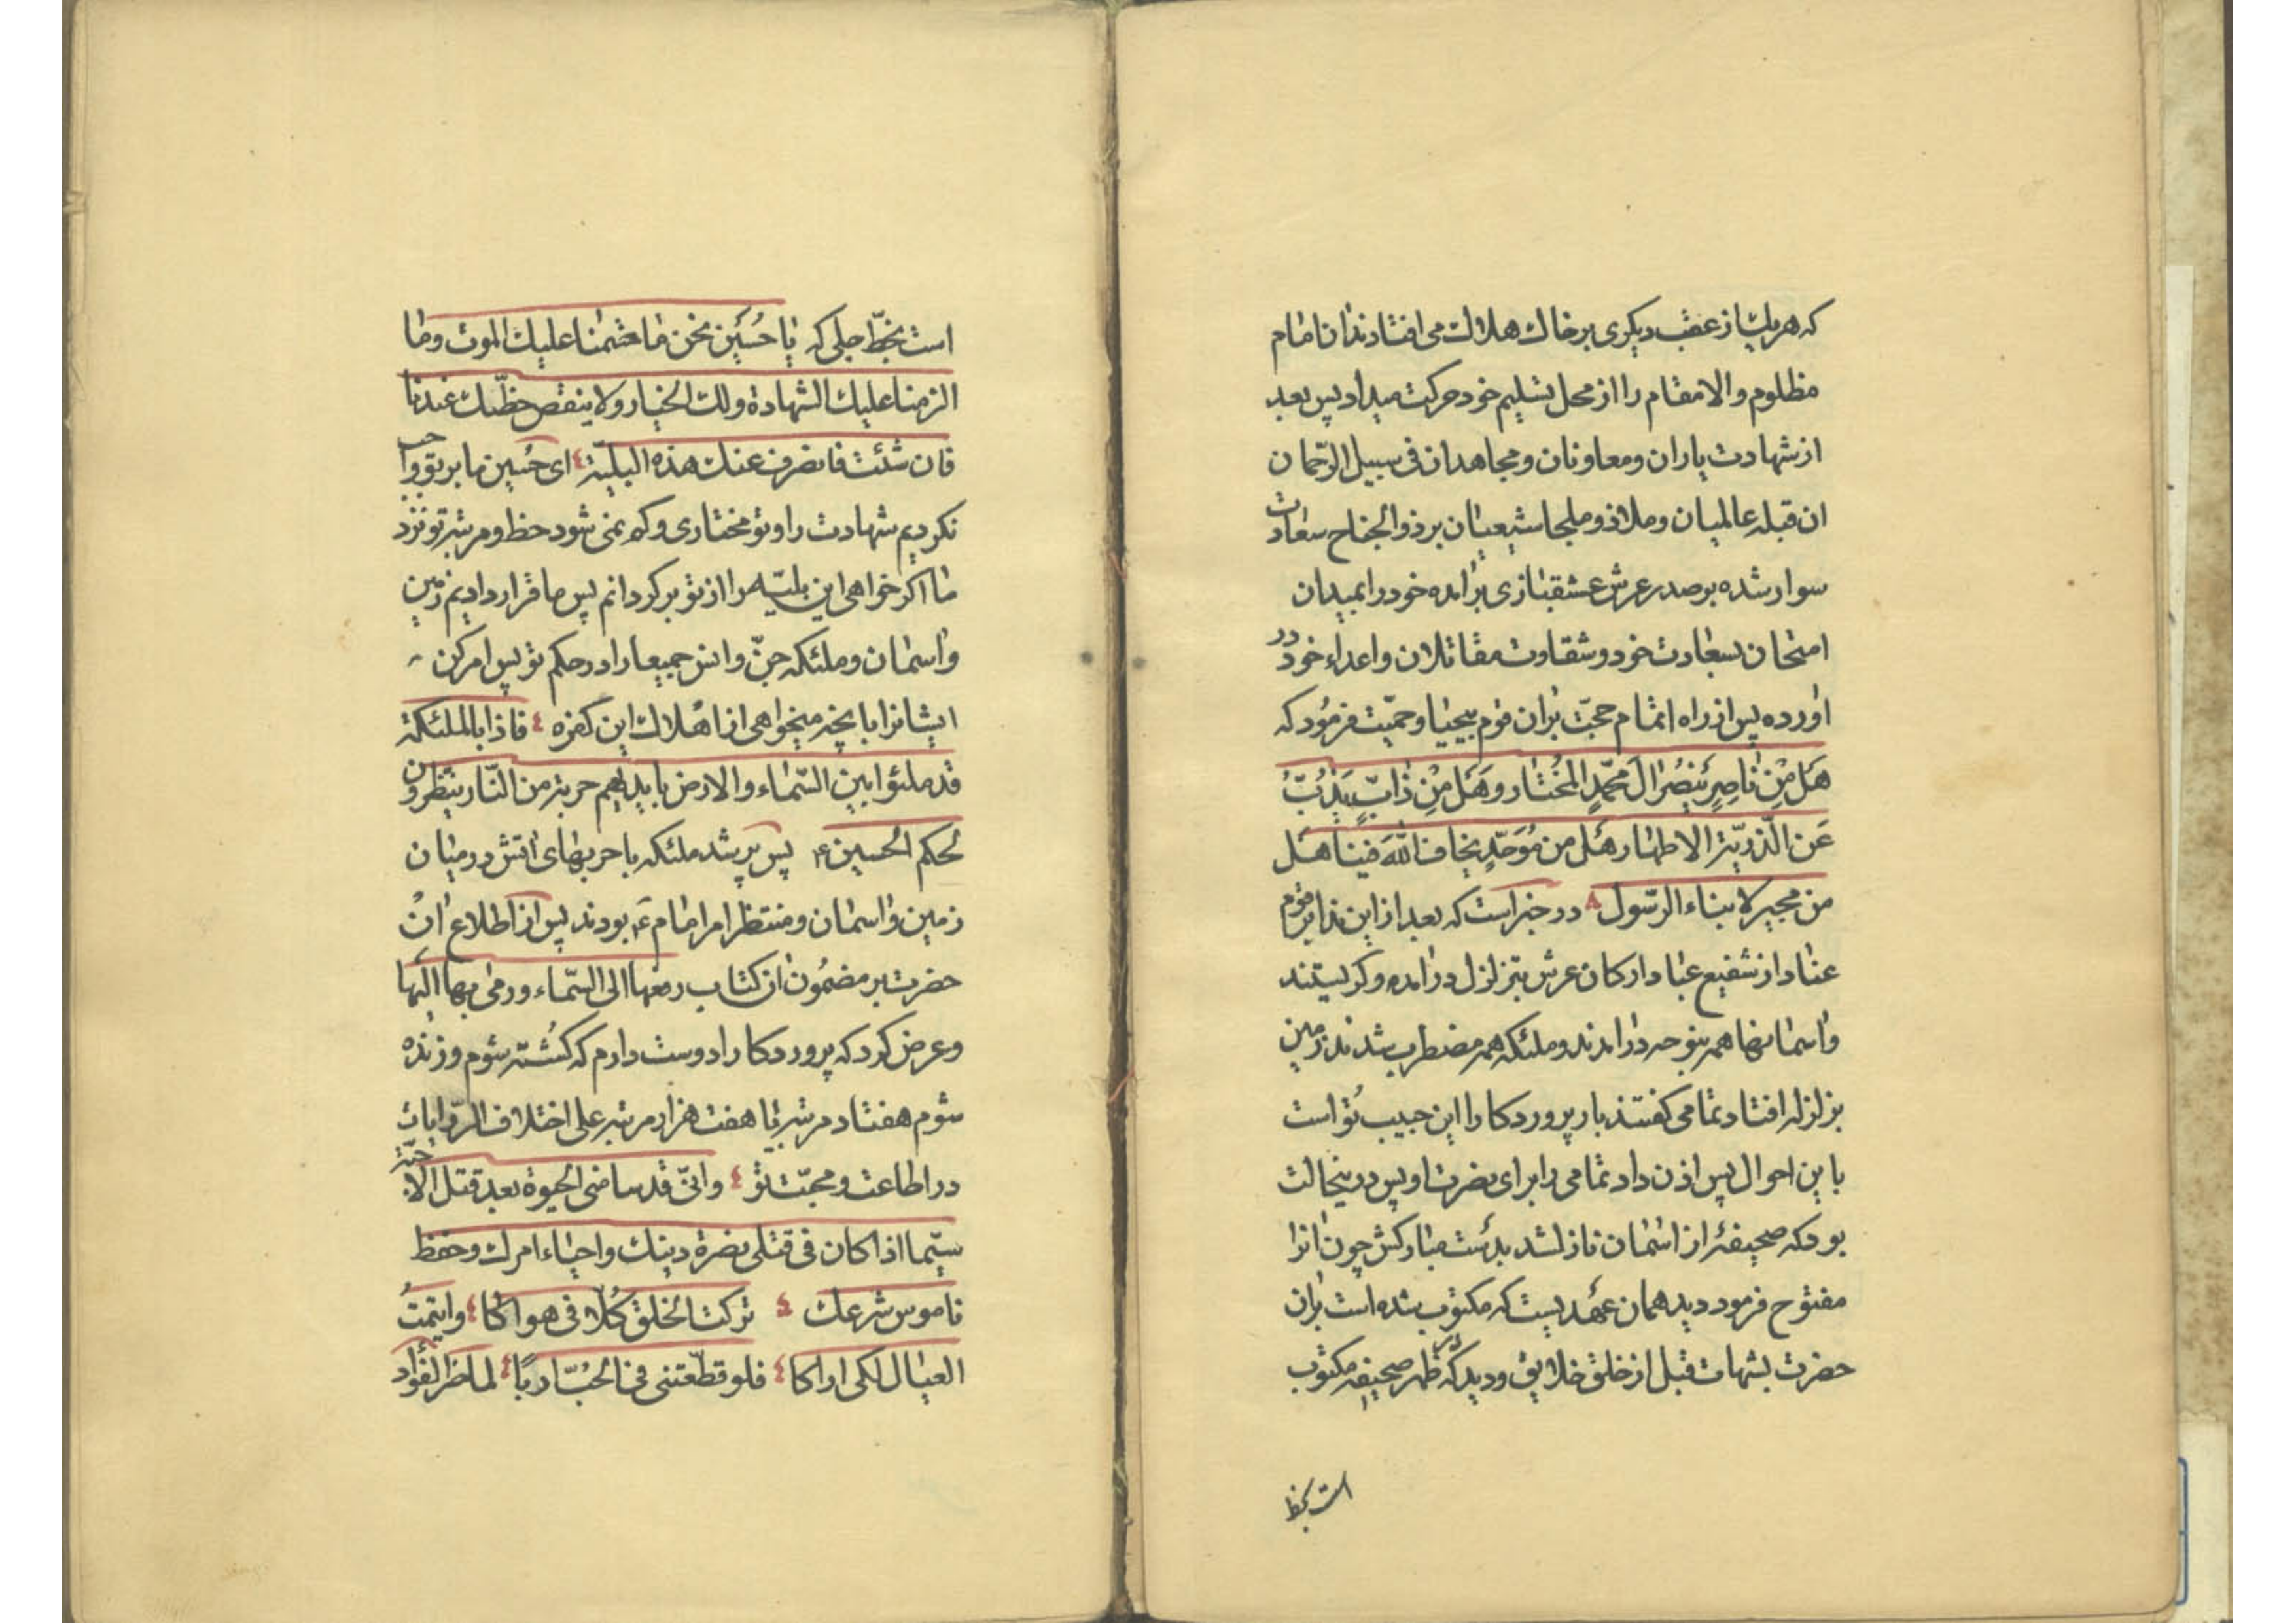 که هر یک از عقب دیکری بر خاک هلاک می افتادند ان امام
مظلوم والامقام را از محل تسلیم خود حرکت میداد پس بعد
از شهادت یاران و معاونان و مجاهدان فی سبیل الرّحمان
ان قبله عالمیان و ملاذ و ملجا شیعیان بر ذوالجناح سعادت
سوار شده بر صدر عرش عشقبازی برامده خود را بمیدان
امتحان سعادت خود و شقاوت مقاتلان و اعداء خود در
اورده پس از راه اتمام حجّت بران قوم بیحیا و حمیّت فرمُود که
هَل مِنْ ناصِرٍ یَنصُرُ الَ مُحمّدٍ المُختار وهَل مِن ذابٍّ یَذُبُّ
عَن الذّریّة الاطهار هَل من مُوَحّدٍ یخاف اللّٰهَ فینا هَل
من مجیر لابناء الرّسول در خبر است که بعد از این ندا بر قوم
عناد از شفیع عباد ارکان عرش بتزلزل درامده و کریستند
واسمانها همه بنوحه درامدند و ملئکه همه مضطرب شدند زمین
بزلزله افتاد تمامی کفتند بار پروردکارا این حبیب تُو است
باین احوال پس اذن داد تمامی را برای نصرت او پس در ینحالت
بود که صحیفهٔ از اسمان نازلشد بدست مبارکش چون انرا
مفتوح فرمود دید همان عهدیست که مکتوب شده است بران
حضرت بشهادت قبل از خلق خلایق و دید که در ظهر صحیفه مکتوب
است بخط
است بخطّ جلی که یا حُسَین نحن ما حتمنا علیک الموت وما
الزمنا علیک الشهادة ولک الخیار ولا ینقص حظّک عندنا
فان شئت فانصرف عنک هذه البلیّة ای حُسین ما بر تو واجب
نکردیم شهادت را و تو مختاری و کم نمی شود حظ و مرتبه تو نزد
ما اکر خواهی این بلیّه را از تو برکردانم پس ما قرار دادیم زمین
واسمان و ملئکه جنّ وانس جمیعا را در حکم تو پس امر کن
ایشانرا بانچه میخواهی از اهلاک این کفره فاذا بالملئکة
قد ملئوا بین السّماء والارض بایدیهم حربة من النّار ینتظرون
لحکم الحُسین ع پس پر شد ملئکه با حربهای اتش در میان
زمین واسمان و منتظر امر امام ع بودند پس از اطلاع ان
حضرت بر مضمُون ان کتاب رفعها الی السّماء ورمی بها الیها
وعرض کرد که پروردکارا دوست دارم که کُشته شوم و زنده
شوم هفتاد مرتبه یا هفت هزار مرتبه علی اختلاف الرّوایات
در اطاعت و محبّت تو وانّی قد سامنی الحیوة بعد قتل الاحبّة
سیّما اذا کان فی قتلی نصرة دینک واحیاء امرک وحفظ
ناموس شرعک ترکت الخلق کُلا فی هواکا وایتمتُ
العیال لکی اراکا فلو قطّعتنی فی الحُبّ اربًا لما الفؤاد